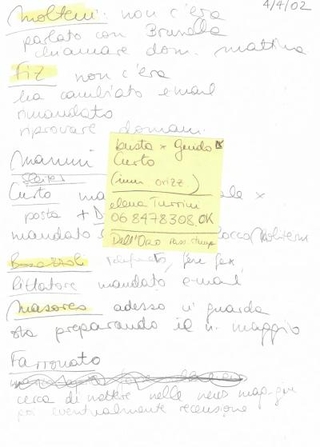 4/4/02
Molteni: non c'era
parlato con Brunella
chiamare dom. mattina
Fiz non c'era
ha cambiato email
rimandato
riprovare domani
Mammi
Curto
posta +
mandato
busta x Guido
Curto
(inv. orizz)
elena Turrini
06 8478308 OK
Dell'Orso
telefonato, fare fax
Pittatore mandato email
Masoero adesso ci guarda
sta preparando il n. maggio
Farronato
cerca di mettere nelle news mag-giu
poi eventualmente recensione